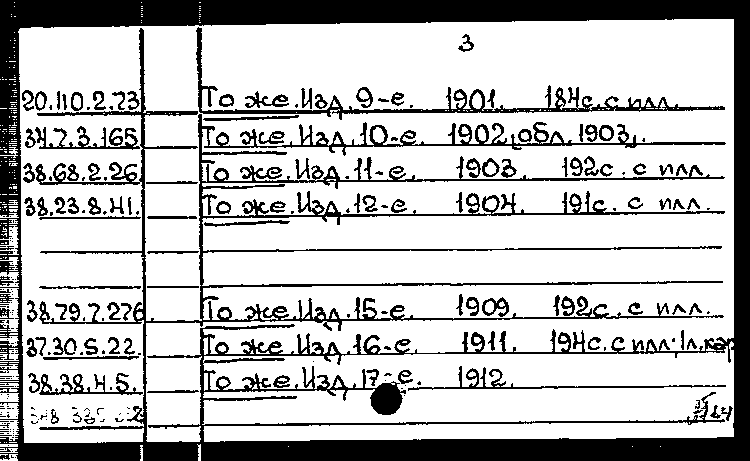 3
20.110.2.73 То же. Изд. 9-е. 1901. 184с. с илл.
34.7.3.165 То же. Изд. 10-е. 1902 [обл. 1903].
38.68.2.26 То же. Изд. 11-е. 1903. 192с. с илл.
38.23.8.41. То же. Изд. 12-е. 1904. 191с. с илл.
38.79.7.276. То же. Изд. 15-е. 1909. 192с. с илл.
37.30.5.22. То же. Изд. 16-е. 1911. 194с. с илл. 1л. кар
38.38.4.5. То же. Изд. 17-е. 1912.